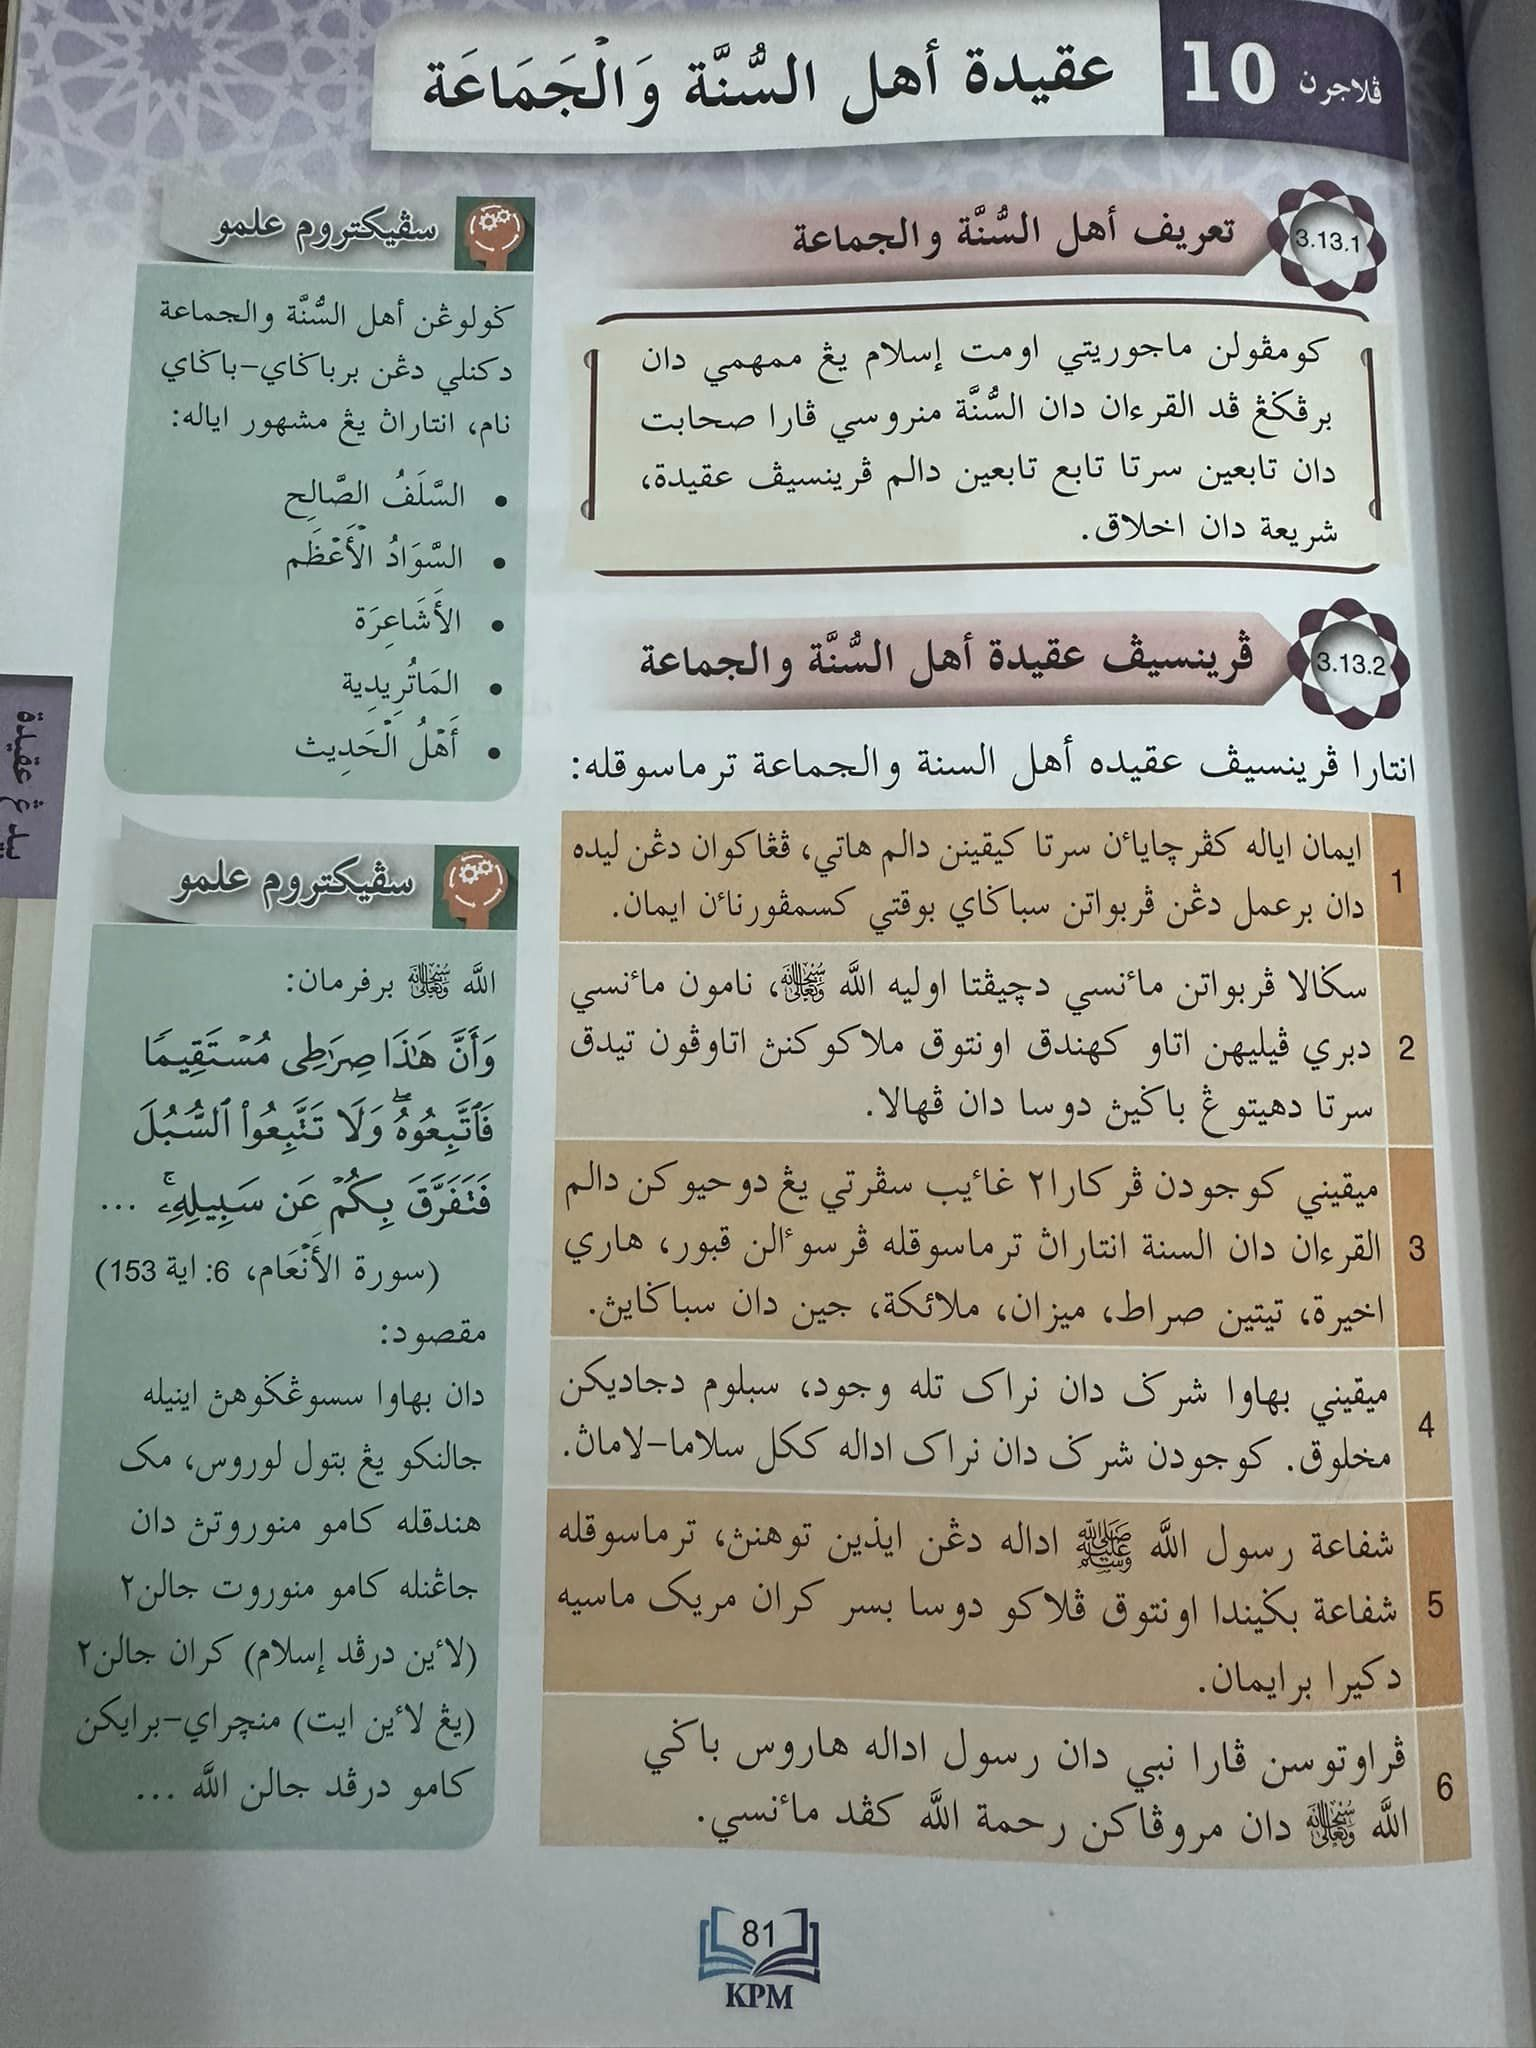 ڤلاجرن 10
عقيدة أهل السُّنَّة وَالْجَمَاعَة
3.13.1 تعريف أهل السُّنَّة والجماعة
كومڤولن ماجوريتي اومت إسلام يڠ ممهمي دان
برڤݢڠ ڤد القرءان دان السُّنَّة منروسي ڤارا صحابت
دان تابعين سرتا تابع تابعين دالم ڤرينسيڤ عقيدة،
شريعة دان اخلاق.
3.13.2 ڤرينسيڤ عقيدة أهل السُّنَّة والجماعة
انتارا ڤرينسيڤ عقيده أهل السنة والجماعة ترماسوقله:
1 ايمان اياله کڤرچاياءن سرتا کيقينن دالم هاتي، ڤڠاکوان دڠن ليده
دان برعمل دڠن ڤربواتن سباݢاي بوقتي کسمڤورناءن ايمان.
2 سݢالا ڤربواتن ماءنسي دچيڤتا اوليه الله ﷾، نامون ماءنسي
دبري ڤيليهن اتاو کهندق اونتوق ملاکوکنڽ اتاوڤون تيدق
سرتا دهيتوڠ باݢيڽ دوسا دان ڤهالا.
3 ميقيني کوجودن ڤرکارا٢ غاءيب سڤرتي يڠ دوحيوکن دالم
القرءان دان السنة انتاراڽ ترماسوقله ڤرسوءالن قبور، هاري
اخيرة، تيتين صراط، ميزان، ملائكة، جين دان سباݢايڽ.
4 ميقيني بهاوا شرݢ دان نراک تله وجود، سبلوم دجاديکن
مخلوق. کوجودن شرݢ دان نراک اداله ککل سلاما-لاماڽ.
5 شفاعة رسول الله ﷺ اداله دڠن ايذين توهنڽ، ترماسوقله
شفاعة بݢيندا اونتوق ڤلاکو دوسا بسر کران مريک ماسيه
دکيرا برايمان.
6 ڤراوتوسن ڤارا نبي دان رسول اداله هاروس باݢي
الله ﷾ دان مروڤاکن رحمة الله کڤد ماءنسي.
سڤيکتروم علمو
ݢولوڠن أهل السُّنَّة والجماعة
دکنلي دڠن برباݢاي-باݢاي
نام، انتاراڽ يڠ مشهور اياله:
• السَّلَفُ الصَّالِح
• السَّوَادُ الْأَعْظَم
• الأَشَاعِرَة
• المَاتُرِيدِية
• أَهْلُ الْحَدِيث
سڤيکتروم علمو
الله ﷾ برفرمان:
وَأَنَّ هَٰذَا صِرَٰطِى مُسْتَقِيمًا
فَٱتَّبِعُوهُ ۖ وَلَا تَتَّبِعُوا۟ ٱلسُّبُلَ
فَتَفَرَّقَ بِكُمْ عَن سَبِيلِهِۦ ۚ ...
(سورة الأَنْعَام، 6: اية 153)
مقصود:
دان بهاوا سسوڠݢوهڽ اينيله
جالنکو يڠ بتول لوروس، مک
هندقله کامو منوروتڽ دان
جاڠنله کامو منوروت جالن٢
(لاءين درڤد إسلام) کران جالن٢
(يڠ لاءين ايت) منچراي-برايکن
کامو درڤد جالن الله ...
بيدڠ عقيدة
81
KPM